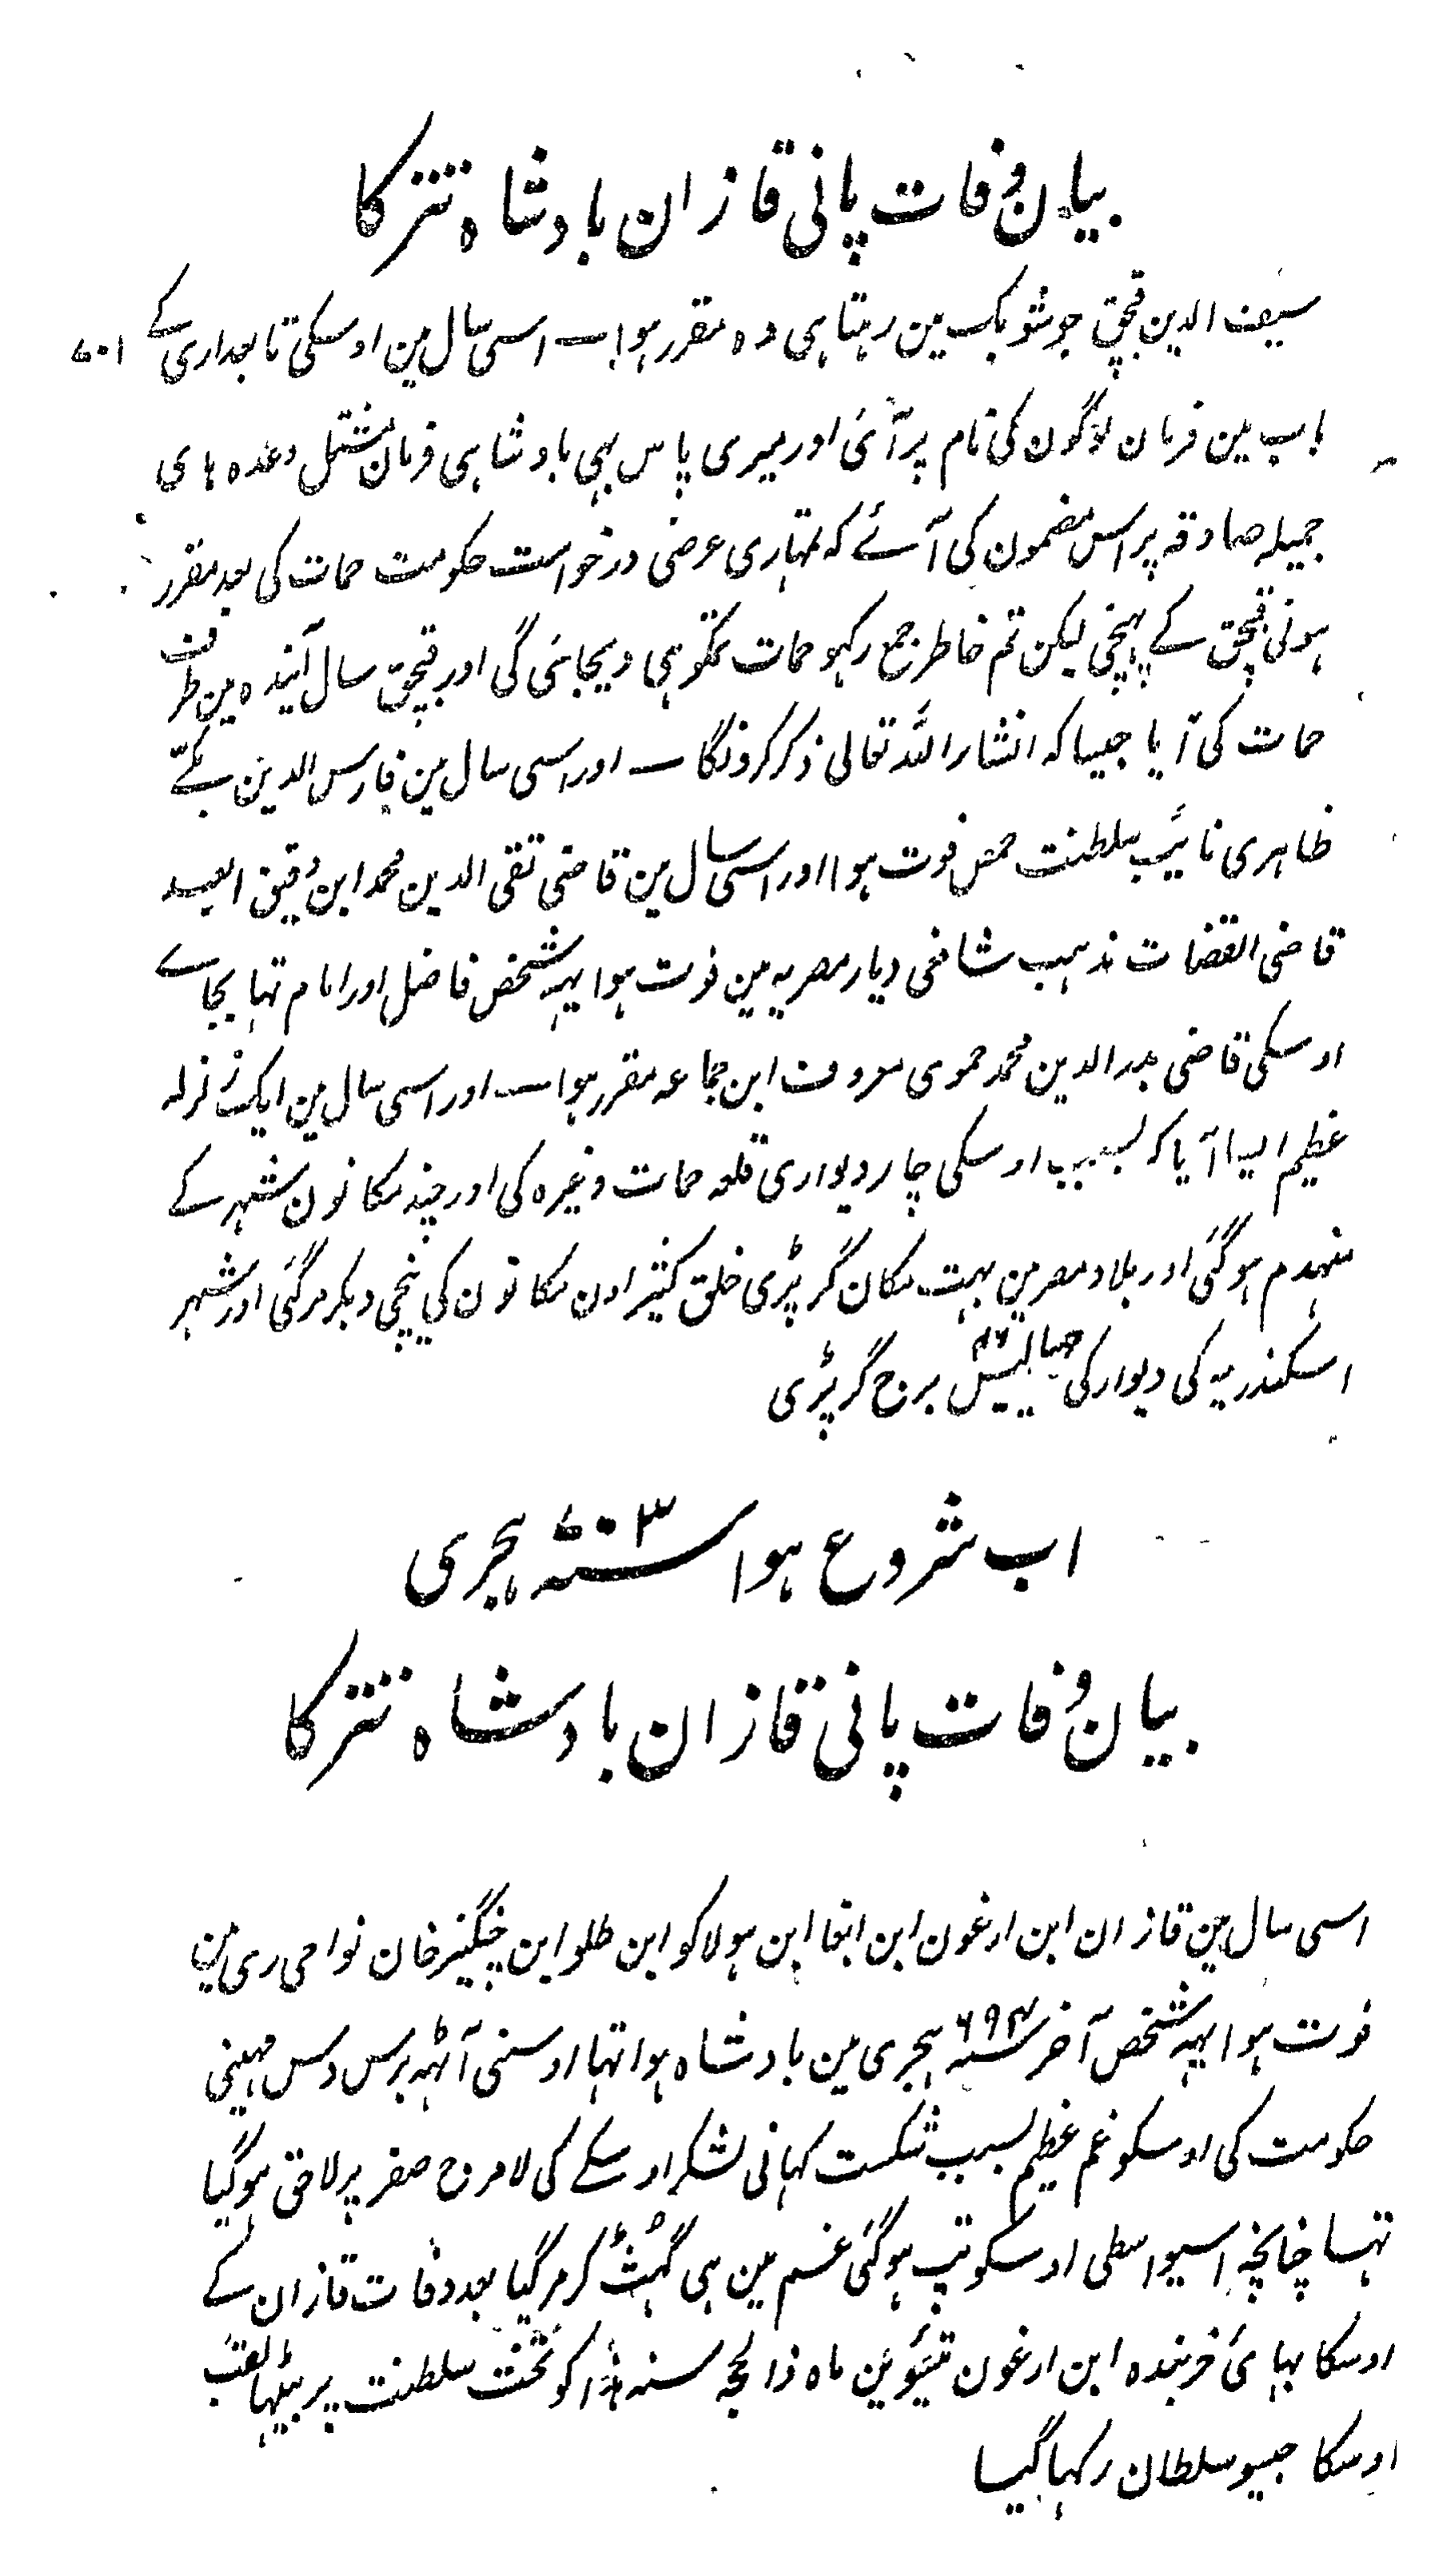 بیان وفات پانی قازان بادشاہ تتر کا
سیف الدین قبجق جو شوبک مین رہتا ہی وہ مقرر ہوا۔ اسی سال مین اوسکی تابعداری کے
۷۰۱
باب مین فرمان لوگون کی نام پر آئی اور میری پاس بہی بادشاہی فرمان مشتمل وعدہ ہای
جمیلہ صادقہ پر اس مضمون کی آئے کہ تمہاری عرضی درخواست حکومت حمات کی بعد مقرر
ہونی قبجق کے پہنچی لیکن تم خاطر جمع رکہو حمات تمکو ہی دیجایئی گی اور قبجق سال آیندہ مین طرف
حمات کی آیا جیسا کہ انشاراللہ تعالی ذکر کرونگا ۔ اور اسی سال مین فارس الدین بکے
ظاہری نائب سلطنت حمص فوت ہوا اور اسی سال مین قاضی تقی الدین محمد ابن دقیق العید
قاضی القضات مذہب شافعی دیار مصریہ مین فوت ہوا یہہ شخص فاضل اور امام تہا بجاے
اوسکی قاضی بدرالدین محمد حموی معروف ابن جماعہ مقرر ہوا ۔ اور اسی سال مین ایک زلزلہ
عظیم ایسا آیا کہ بسبب اوسکی چار دیواری قلعہ حمات وغیرہ کی اور چند مکانون شہر کے
منہدم ہوگئی اور بلاد مصر مین بہت مکان گر پڑی خلق کثیر اون مکانون کی نیچی دبکر مرگئی اور شہر
اسکندریہ کی دیوار کی چہیالیس ۴۶ برج گر پڑی
اب شروع ہوا سنہ ۷۰۳ ہجری
بیان وفات پانی قازان بادشاہ تتر کا
اسی سال مین قازان ابن ارغون ابن ابغا ابن ہولاکو ابن طلو ابن چنگیز خان نواحی ری مین
فوت ہوا یہہ شخص آخر سنہ ۶۹۴ ہجری مین بادشاہ ہوا تہا اوسنی آٹہہ برس دس مہینی
حکومت کی اوسکو غم عظیم بسبب شکست کہانی لشکر اوسکے کی لامروح صفر پر لاحق ہوگیا
تہا چنانچہ اسیواسطی اوسکو تپ ہوگئی غم مین ہی گہُٹ کر مرگیا بعد وفات قازان کے
اوسکا بہائی خربندہ ابن ارغون تیئوین ماہ ذالحجہ سنہ ہذا کو تخت سلطنت پر بیٹہا لقب
اوسکا جیو سلطان رکہا گیا